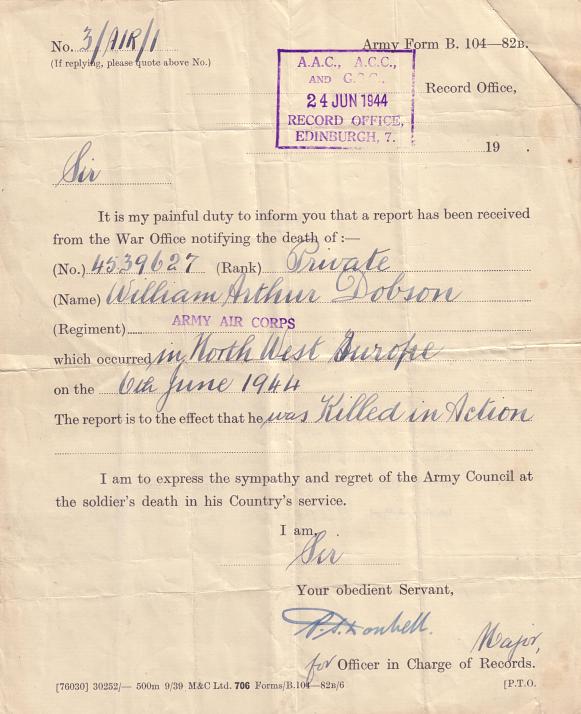 No. 3/AIR/1
Army Form B. 104—82B.
(If replying, please quote above No.)
A.A.C., A.C.C.,
AND G.S.C.,
24 JUN 1944
RECORD OFFICE,
EDINBURGH, 7.
Record Office,
19 .
Sir
It is my painful duty to inform you that a report has been received
from the War Office notifying the death of :—
(No.) 4539627 (Rank) Private
(Name) William Arthur Dobson
(Regiment) ARMY AIR CORPS
which occurred in North West Europe
on the 6th June 1944
The report is to the effect that he was Killed in Action
I am to express the sympathy and regret of the Army Council at
the soldier's death in his Country's service.
I am,
Sir
Your obedient Servant,
Major,
for Officer in Charge of Records.
[76030] 30252/— 500m 9/39 M&C Ltd. 706 Forms/B.104—82B/6
[P.T.O.